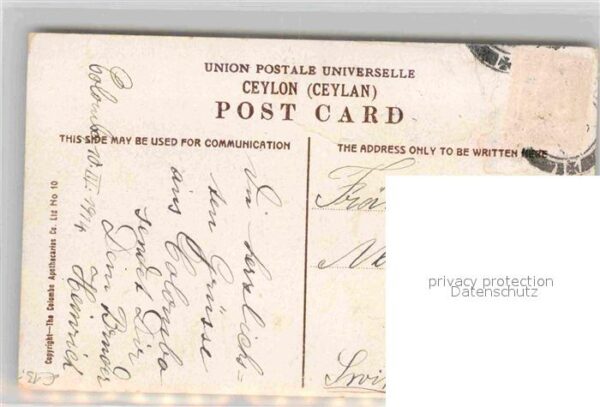 UNION POSTALE UNIVERSELLE
CEYLON (CEYLAN)
POST CARD
THIS SIDE MAY BE USED FOR COMMUNICATION
THE ADDRESS ONLY TO BE WRITTEN HERE
Colombo 10. III. 1914
Die herzlich-
sten Grüsse
aus Colombo
sendet Dir
Dein Bruder
Heinrich
Copyright—The Colombo Apothecaries Co. Ltd No 10
privacy protection
Datenschutz